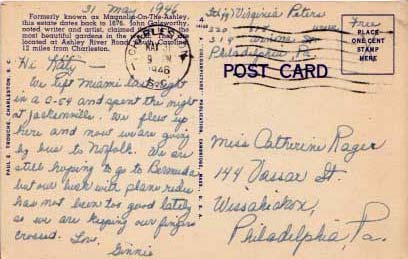 31 May 1946
Formerly known as Magnolia-On-The-Ashley,
this estate dates back to 1676. John Galsworthy,
noted writer and artist, claimed this the most
beautiful gardens in the
located at Ashley River Road, South Carolina,
12 miles from Charleston.
Hi Kitty
We left Miami last night
in a C-54 and spent the night
at Jacksonville. We flew up
here and now we are going
by bus to Norfolk. We are
still hoping to go to Bermuda
but our luck with plane rides
has not been too good lately
so we are keeping our fingers
crossed. Love,
Ginnie
9
1946
S.C.
Virginia Peters
Philadelphia Pa
Free
PLACE
ONE CENT
STAMP
HERE
POST CARD
Miss Catherine Rager
144 Vassar St.
Wissahickon,
Philadelphia, Pa.